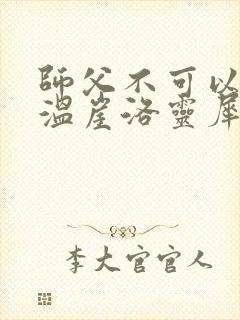 師父不可以
溫崖洛靈犀
李大官官人